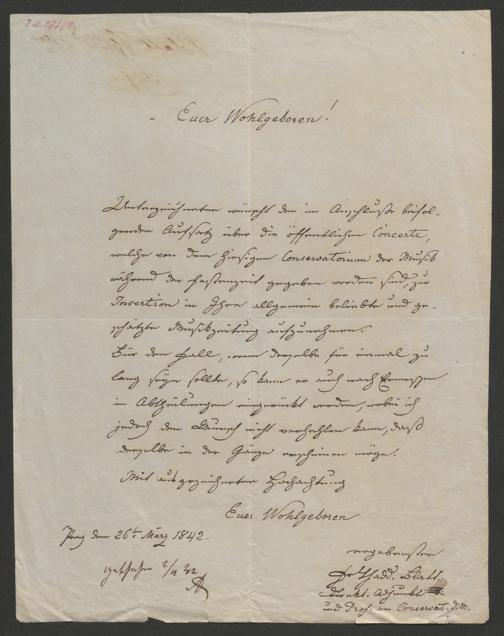 Euer Wohlgeboren!
Unterzeichneter wünscht den im Anschluße beifol-
genden Aufsatz über die öffentlichen Concerte,
welche von dem hiesigen Conservatorium der Musik
während der Fastenzeit gegeben worden sind, zur
Insertion in Ihre allgemein beliebte und ge-
schätzte Musikzeitung aufzunehmen.
Für den Fall, wenn derselbe für einmal zu
lang seyn sollte, so kann er auch nach Ermessen
in Abtheilungen eingerückt werden, wobei ich
jedoch den Wunsch nicht verhehlen kann, daß
derselbe in der Gänze erscheinen möge.
Mit ausgezeichneter Hochachtung
Euer Wohlgeboren
Prag den 26t März 1842.
ergebenster
Thadd. Blatt
Direkt. Adjunkt
und Prof. am Conservat. d. M.